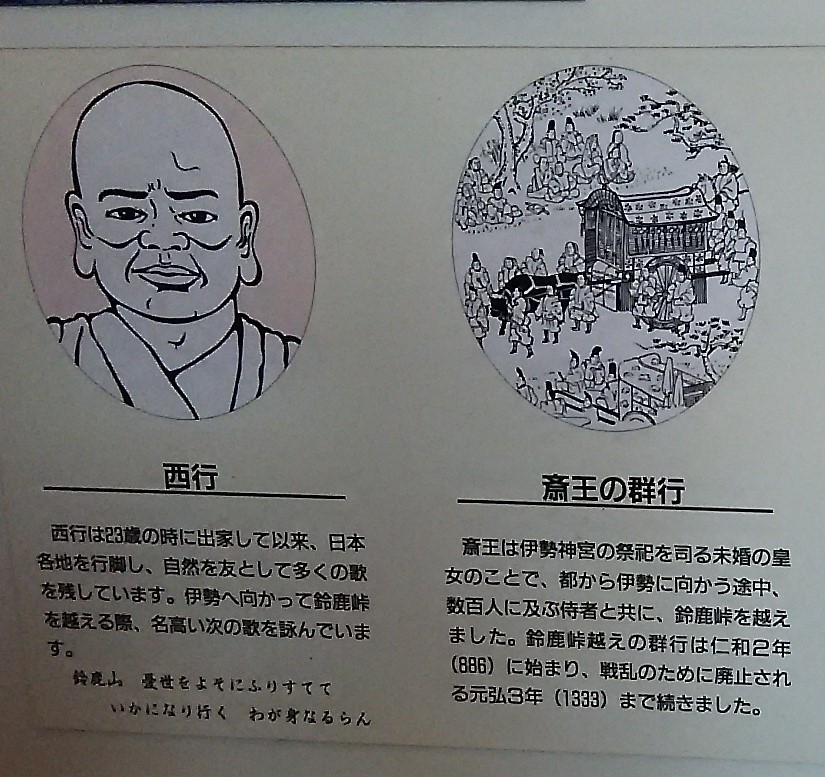 西行
西行は23歳の時に出家して以来、日本
各地を行脚し、自然を友として多くの歌
を残しています。伊勢へ向かって鈴鹿峠
を越える際、名高い次の歌を詠んでいま
す。
鈴鹿山 憂世をよそにふりすてて
いかになり行く わが身なるらん
斎王の群行
斎王は伊勢神宮の祭祀を司る未婚の皇
女のことで、都から伊勢に向かう途中、
数百人に及ぶ侍者と共に、鈴鹿峠を越え
ました。鈴鹿峠越えの群行は仁和2年
(886)に始まり、戦乱のために廃止され
る元弘3年(1333)まで続きました。